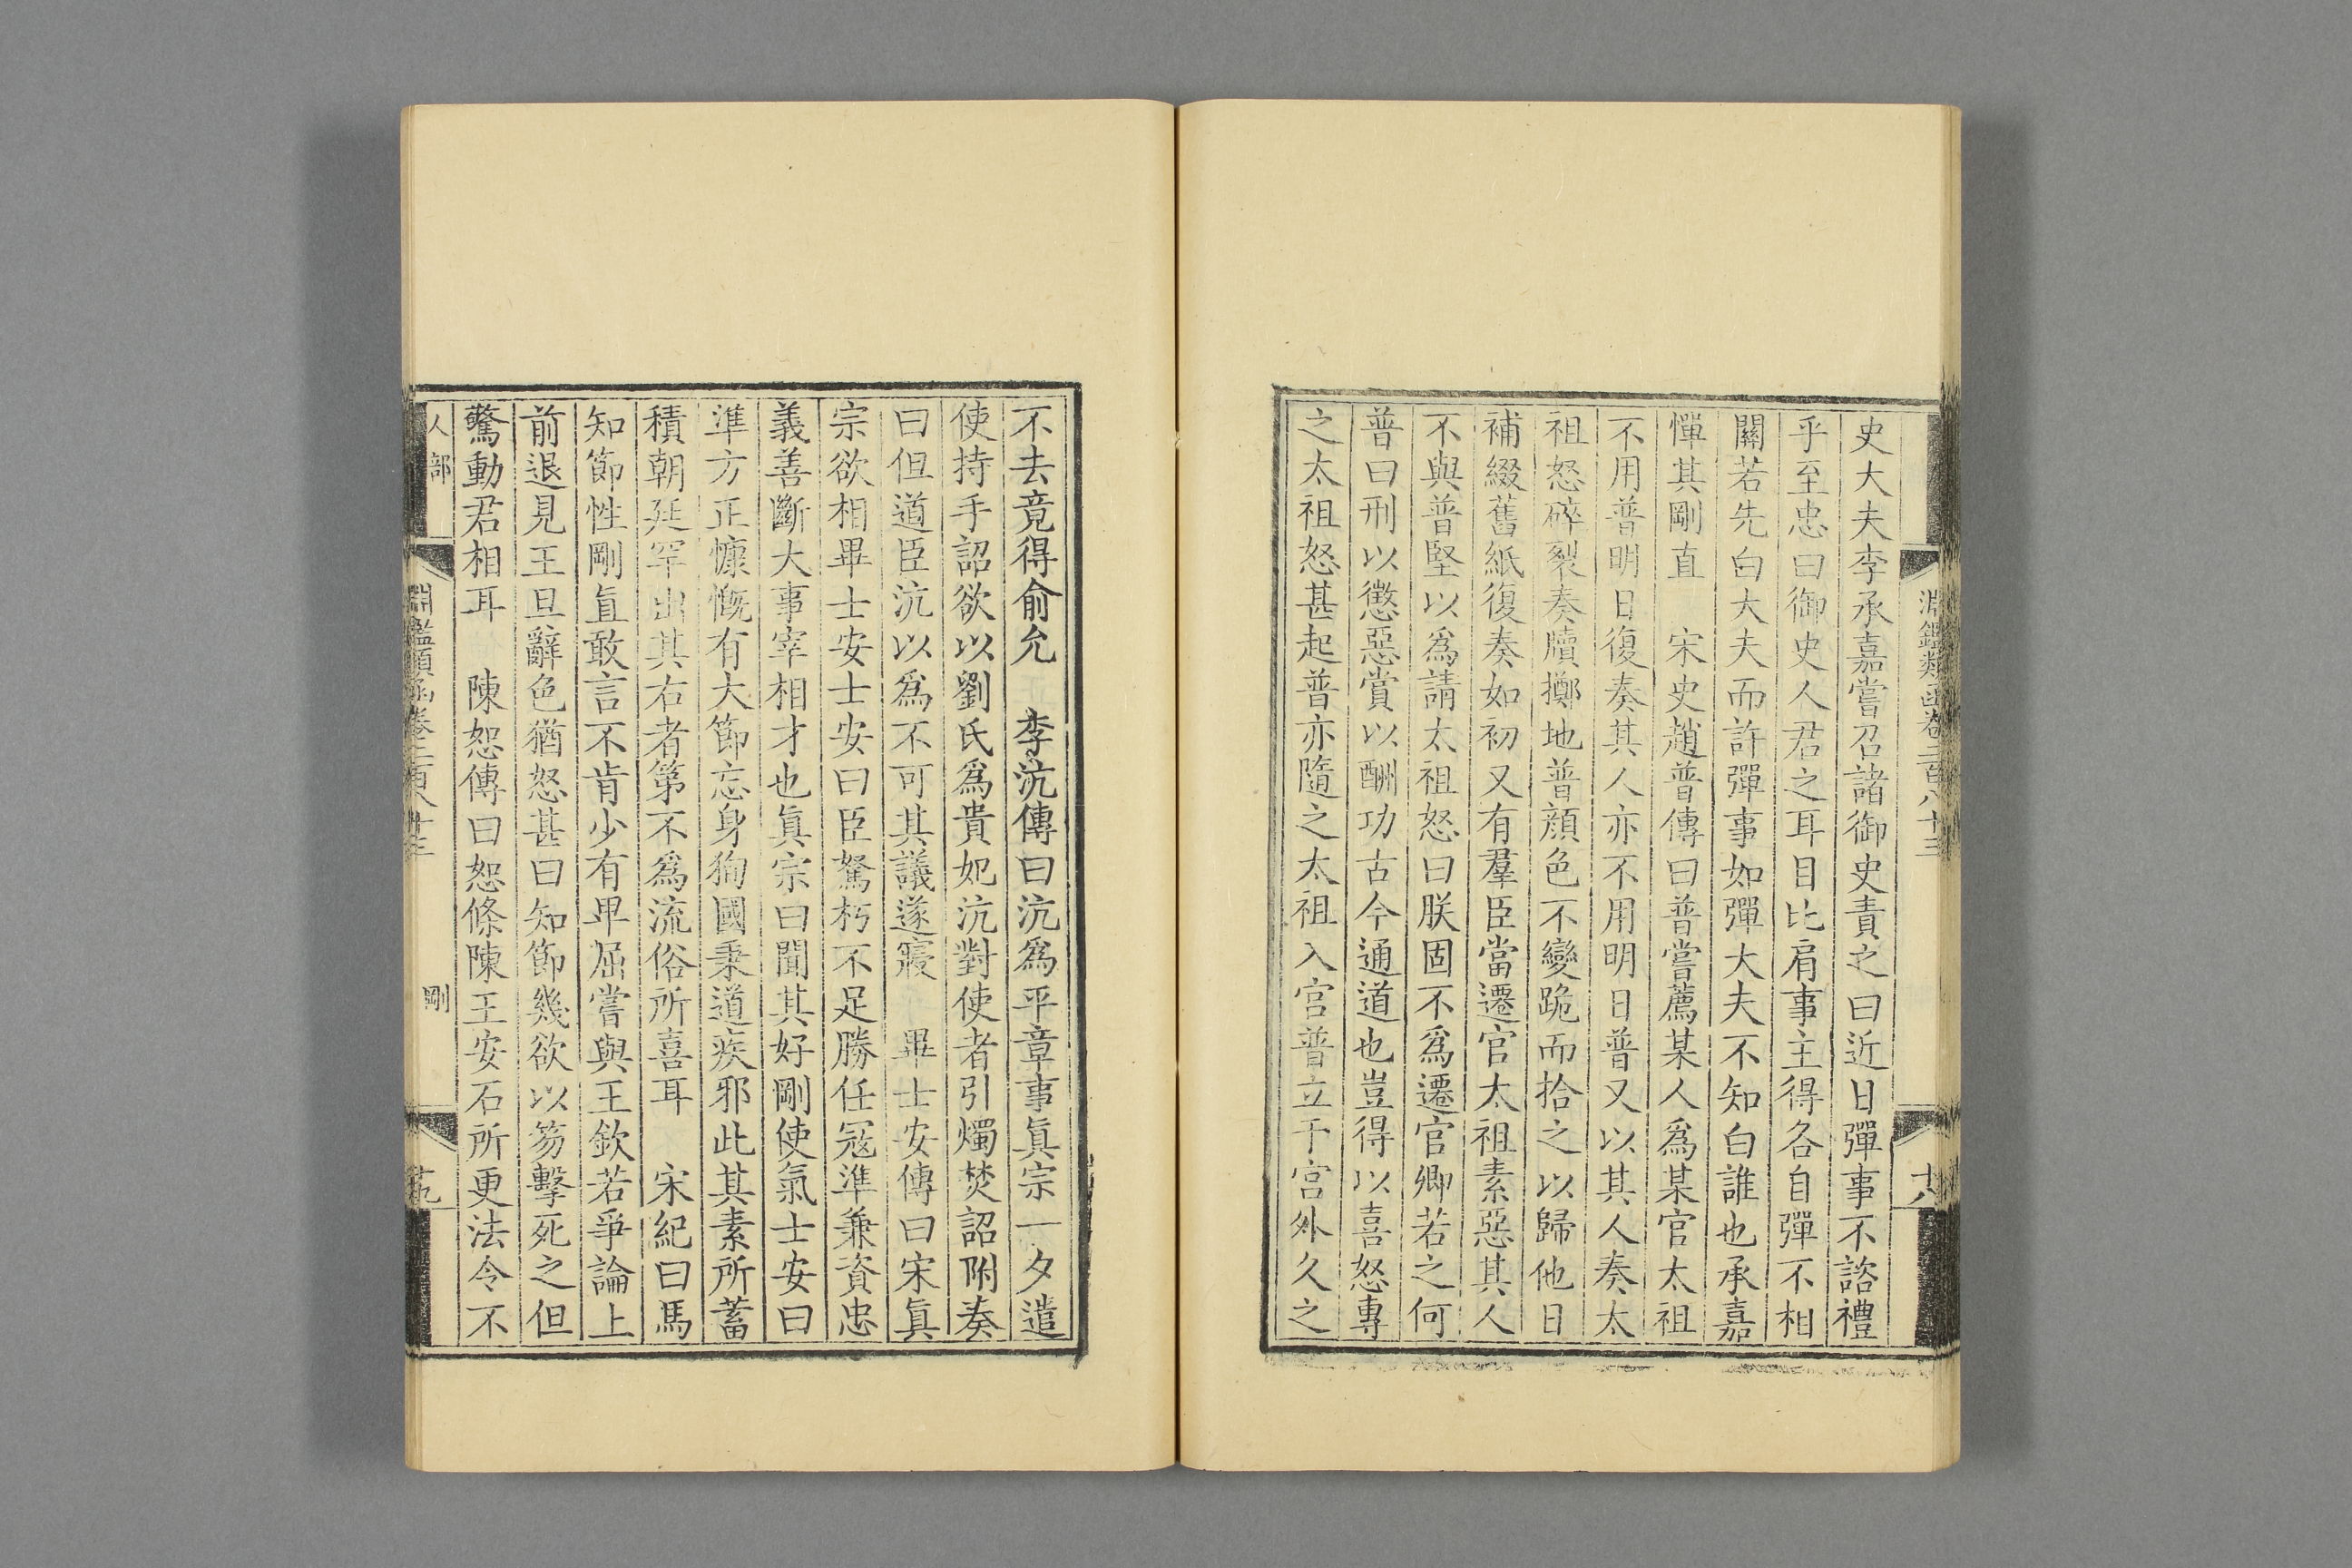 淵鑑類函卷二百八十三
十八
史大夫李承嘉嘗召諸御史責之曰近日彈事不諮禮
乎至忠曰御史人君之耳目比肩事主得各自彈不相
關若先白大夫而許彈事如彈大夫不知白誰也承嘉
憚其剛直 宋史趙普傳曰普嘗薦某人爲某官太祖
不用普明日復奏其人亦不用明日普又以其人奏太
祖怒碎裂奏牘擲地普顏色不變跪而拾之以歸他日
補綴舊紙復奏如初又有羣臣當遷官太祖素惡其人
不與普堅以爲請太祖怒曰朕固不爲遷官卿若之何
普曰刑以懲惡賞以酬功古今通道也豈得以喜怒專
之太祖怒甚起普亦隨之太祖入宮普立于宮外久之
不去竟得俞允 李沆傳曰沆爲平章事眞宗一夕遣
使持手詔欲以劉氏爲貴妃沆對使者引燭焚詔附奏
曰但道臣沆以爲不可其議遂寢 畢士安傳曰宋眞
宗欲相畢士安士安曰臣駑朽不足勝任冦準兼資忠
義善斷大事宰相才也眞宗曰聞其好剛使氣士安曰
準方正慷慨有大節忘身狥國秉道疾邪此其素所蓄
積朝廷罕出其右者第不爲流俗所喜耳 宋紀曰馬
知節性剛直敢言不肯少有卑屈嘗與王欽若爭論上
前退見王旦辭色猶怒甚曰知節幾欲以笏擊死之但
驚動君相耳 陳恕傳曰恕條陳王安石所更法令不
人部
淵鑑類函卷二百八十三
剛